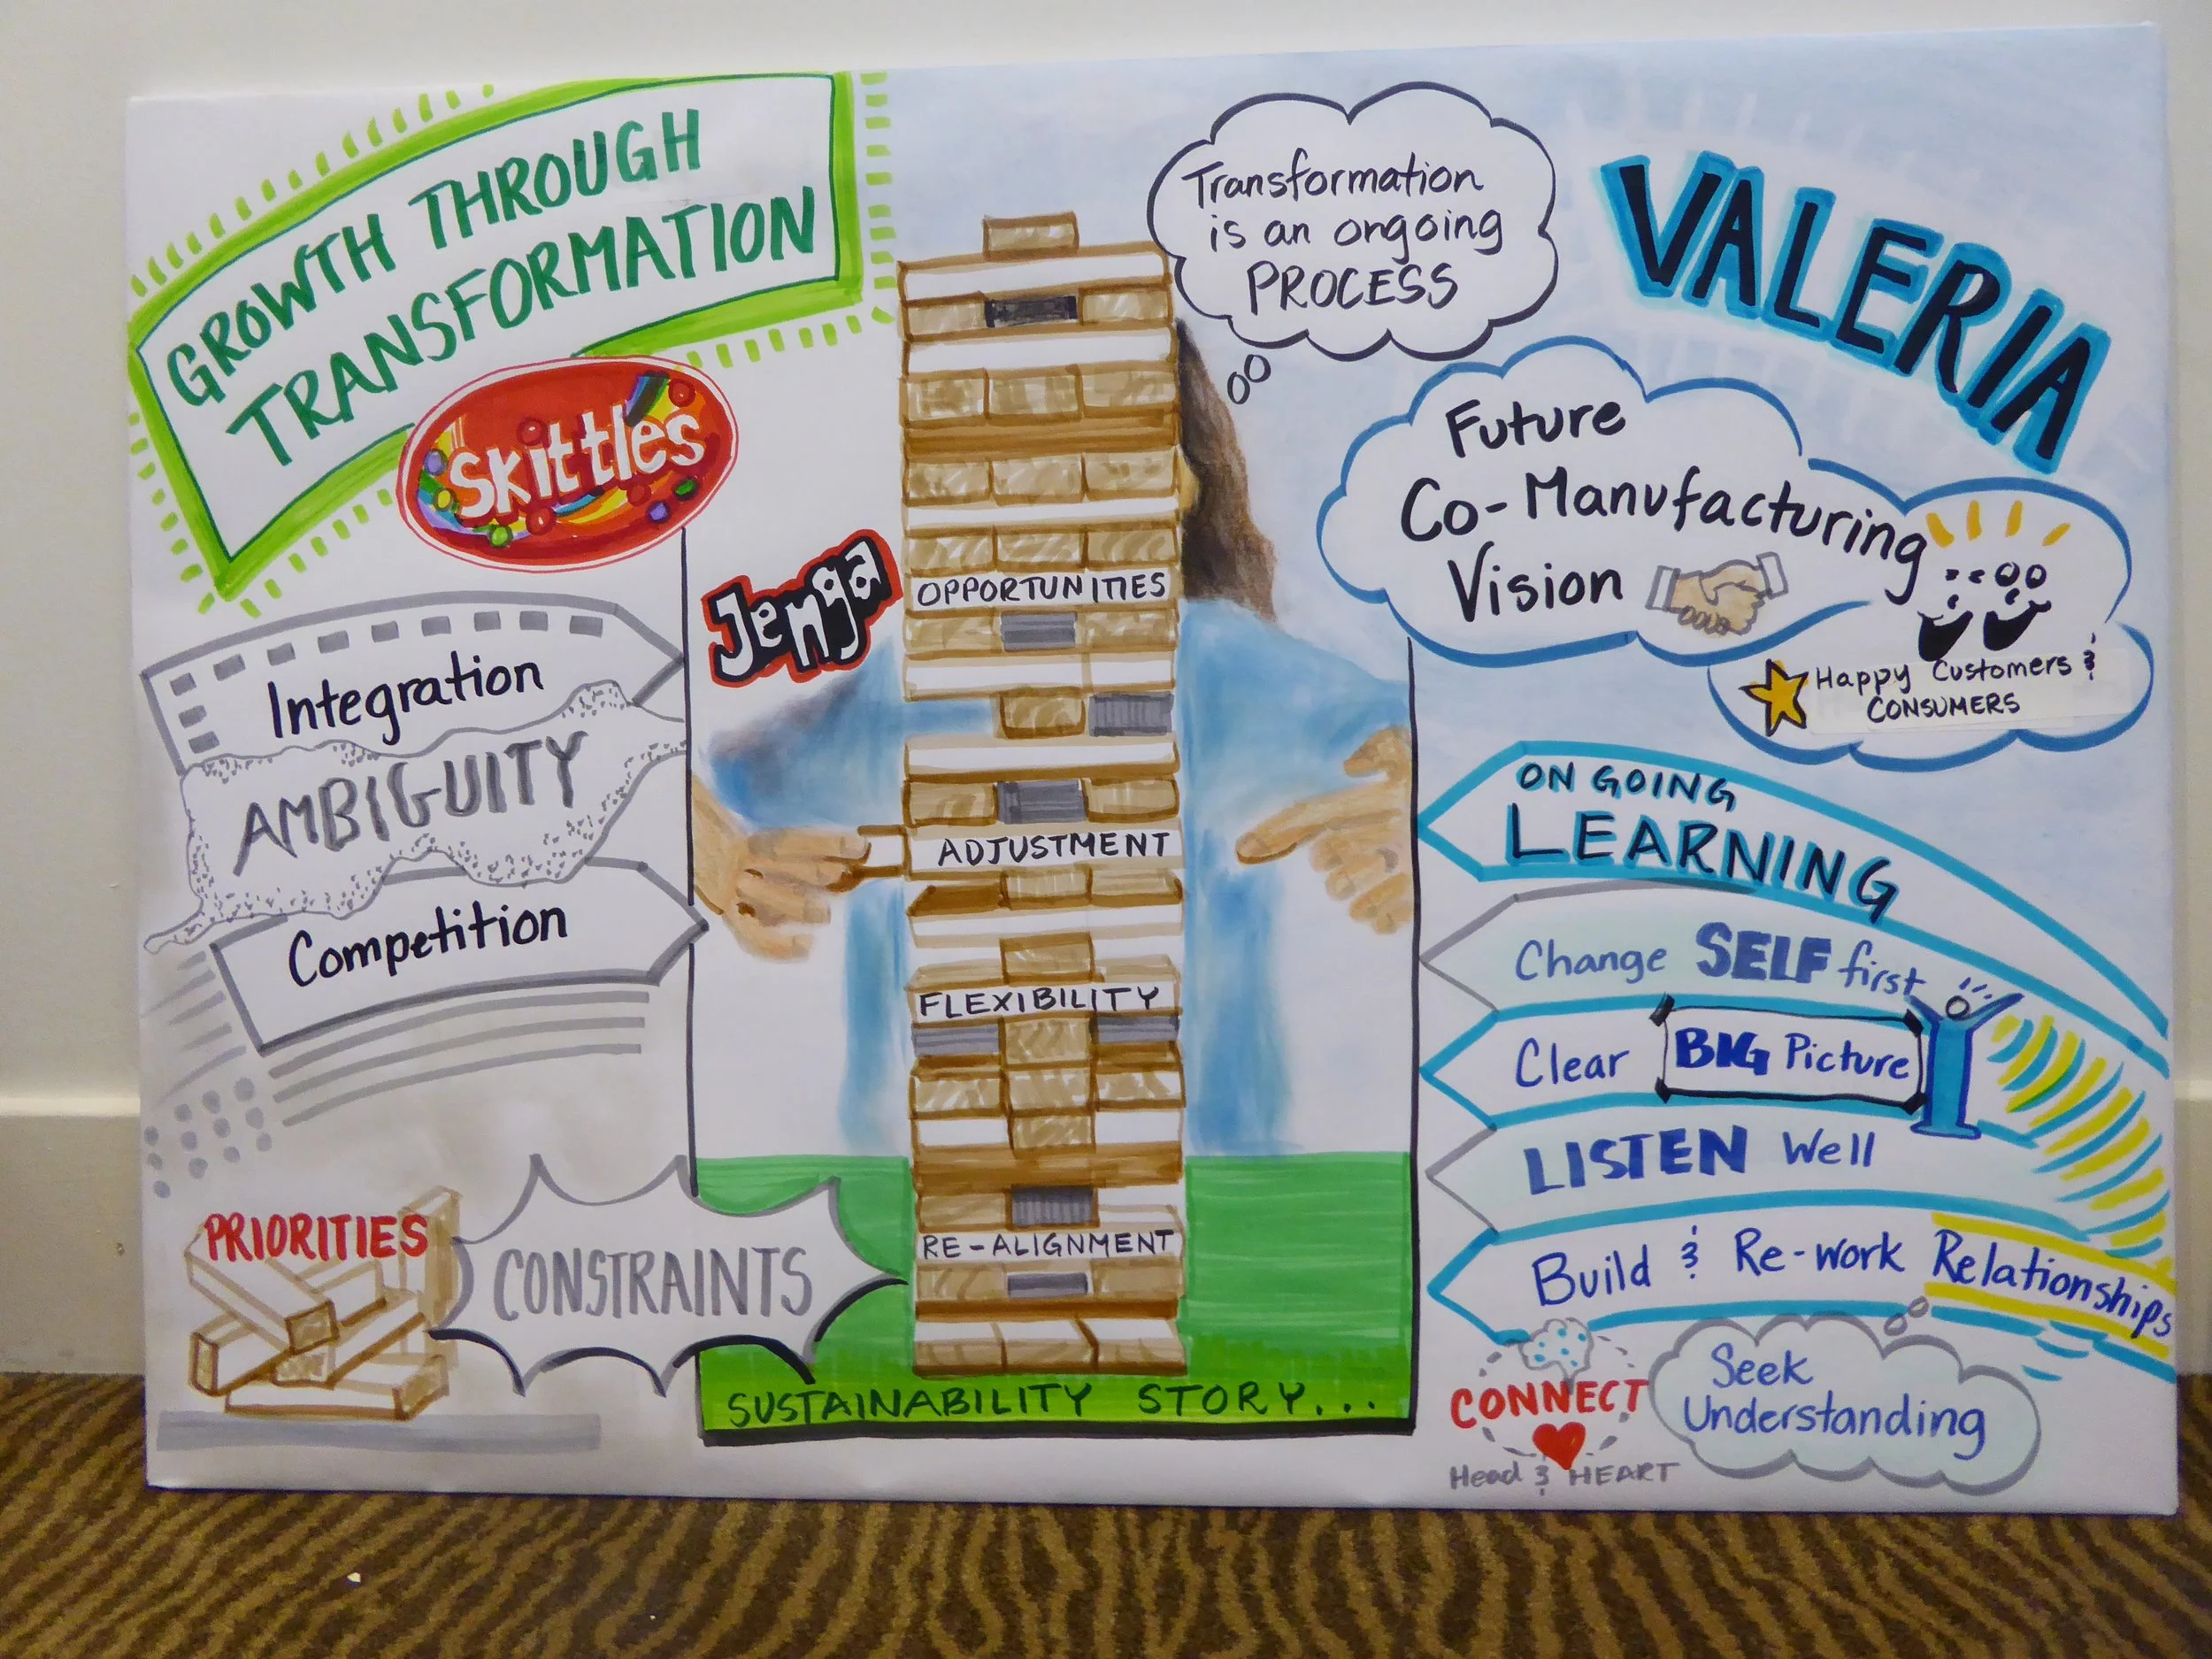 GROWTH THROUGH
TRANSFORMATION
Skittles
Integration
AMBIGUITY
Competition
PRIORITIES
CONSTRAINTS
Jenga
OPPORTUNITIES
ADJUSTMENT
FLEXIBILITY
RE-ALIGNMENT
SUSTAINABILITY STORY...
Transformation
is an ongoing
PROCESS
VALERIA
Future
Co-Manufacturing
Vision
Happy Customers &
CONSUMERS
ON GOING
LEARNING
Change SELF first
Clear BIG Picture
LISTEN Well
Build & Re-work Relationships
CONNECT
Head & HEART
Seek
Understanding